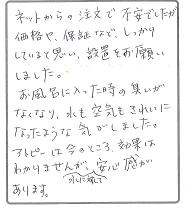 ネットからの注文で不安でしたが
価格や、保証など、しっかり
していると思い、設置をお願い
しました。
お風呂に入った時の臭いが
なくなり、水も空気もきれいに
なったような気がしました。
アトピーは今のところ、効果は
わかりませんが、安心感が
水に対して
あります。